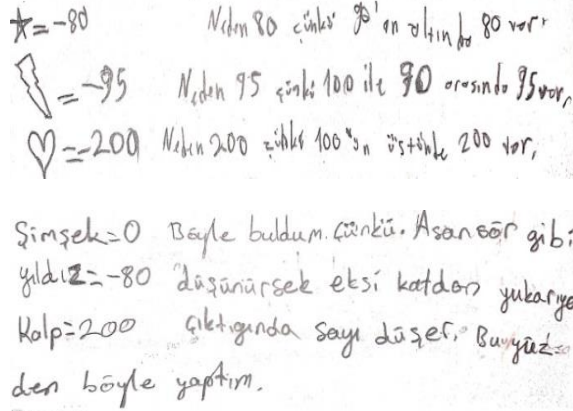 = -80 Neden 80 çünkü 90'ın altında 80 var.
= -95 Neden 95 çünkü 100 ile 90 arasında 95 var,
= -200 Neden 200 çünkü 100'ün üstünde 200 var,
Şimşek=0 Böyle buldum. Çünkü. Asansör gibi
yıldız=-80 düşünürsek eksi kattan yukarıya
Kalp=200 çıktıgında sayı düşer. Bu yüz-
den böyle yaptım.